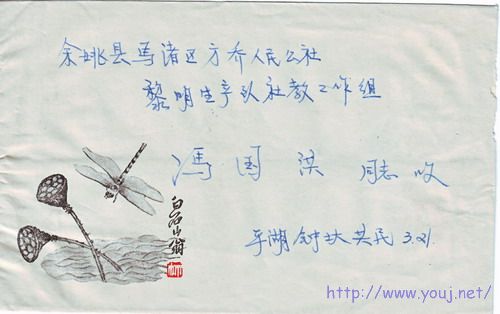 余姚县马渚区方乔人民公社
黎明生产队社教工作组
冯国洪 同志收
平湖钟埭 3.21
白石山翁
http://www.youj.net/